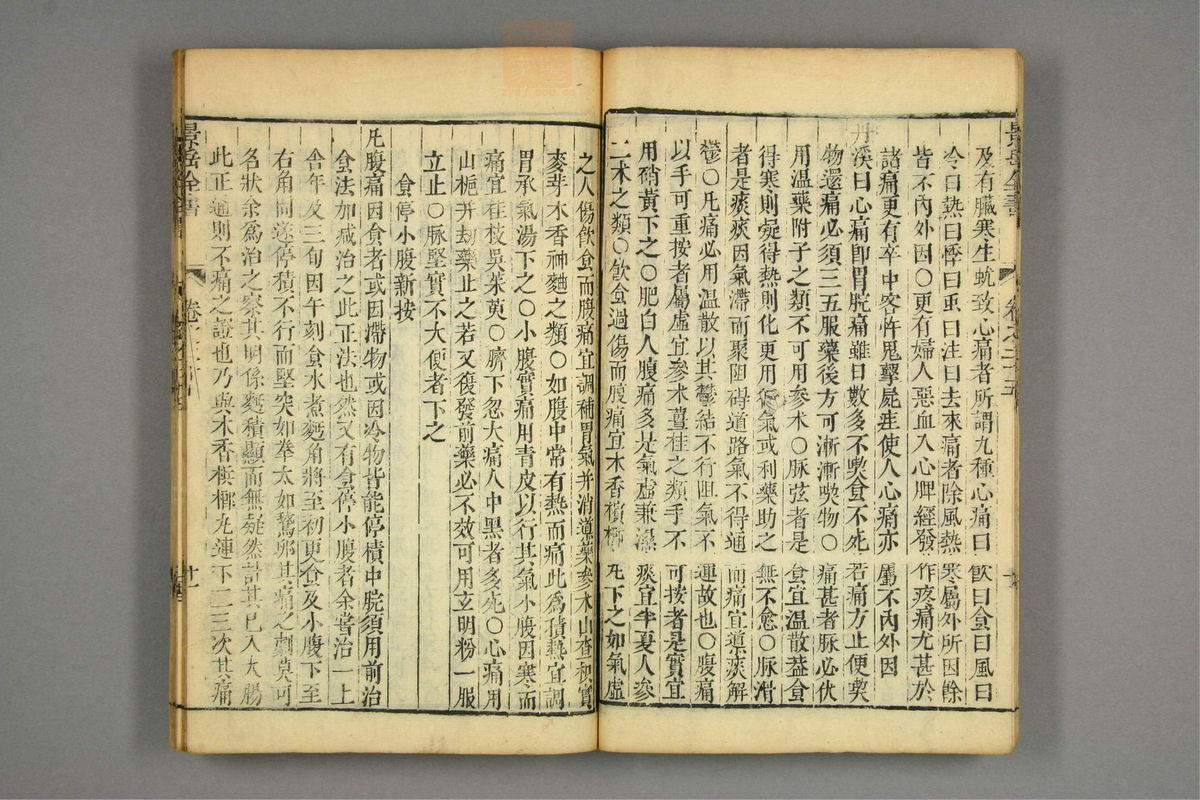 景岳全書
卷之二十五
及有臟寒生蚘致心痛者所謂九種心痛曰飲曰食曰風曰
冷曰熱曰悸曰虫曰注曰去來痛者除風熱寒屬外所因餘
皆不內外因○更有婦人惡血入心脾經發作疼痛尤甚於
諸痛更有卒中客忤鬼擊屍疰使人心痛亦屬不內外因
丹溪曰心痛卽胃脘痛雖日數多不喫食不死若痛方止便喫
物還痛必須三五服藥後方可漸漸喫物○痛甚者脉必伏
用温藥附子之類不可用参术○脉弦者是食宜温散葢食
得寒則凝得熱則化更用氣或利藥助之無不愈○脉滑
者是痰痰因氣滯而聚阻碍道路氣不得通而痛宜導痰解
鬱○凡痛必用温散以其鬱結不行阻氣不運故也○腹痛
以手可重按者屬虛宜参术薑桂之類手不可按者是實宜
用硝黃下之○肥白人腹痛多是氣虛兼濕痰宜半夏人参
二术之類○飲食過傷而腹痛宜木香檳榔丸下之如氣虛
之人傷飲食而腹痛宜調補胃氣并消導藥参术山查枳實
麥芽木香神麯之類○如腹中常有熱而痛此為積熱宜調
胃承氣湯下之○小腹實痛用青皮以行其氣小腹因寒而
痛宜桂枝吳茱萸○臍下忽大痛人中黑者多死○心痛用
山梔并劫藥止之若又復發前藥必不效可用立明粉一服
立止○脉堅實不大便者下之
食停小腹新按
凡腹痛因食者或因滯物或因冷物皆能停積中脘須用前治
食法加减治之此正法也然又有食停小腹者余嘗治一上
舍年及三旬因午刻食水煮麪角將至初更食及小腹下至
右角間遂停積不行而堅突如拳大如鵞卵其痛之劇莫可
名狀余為治之察其明係麪積顯而無疑然計其已入大腸
此正通則不痛之證也乃與木香檳榔丸連下二三次其痛
景岳全書